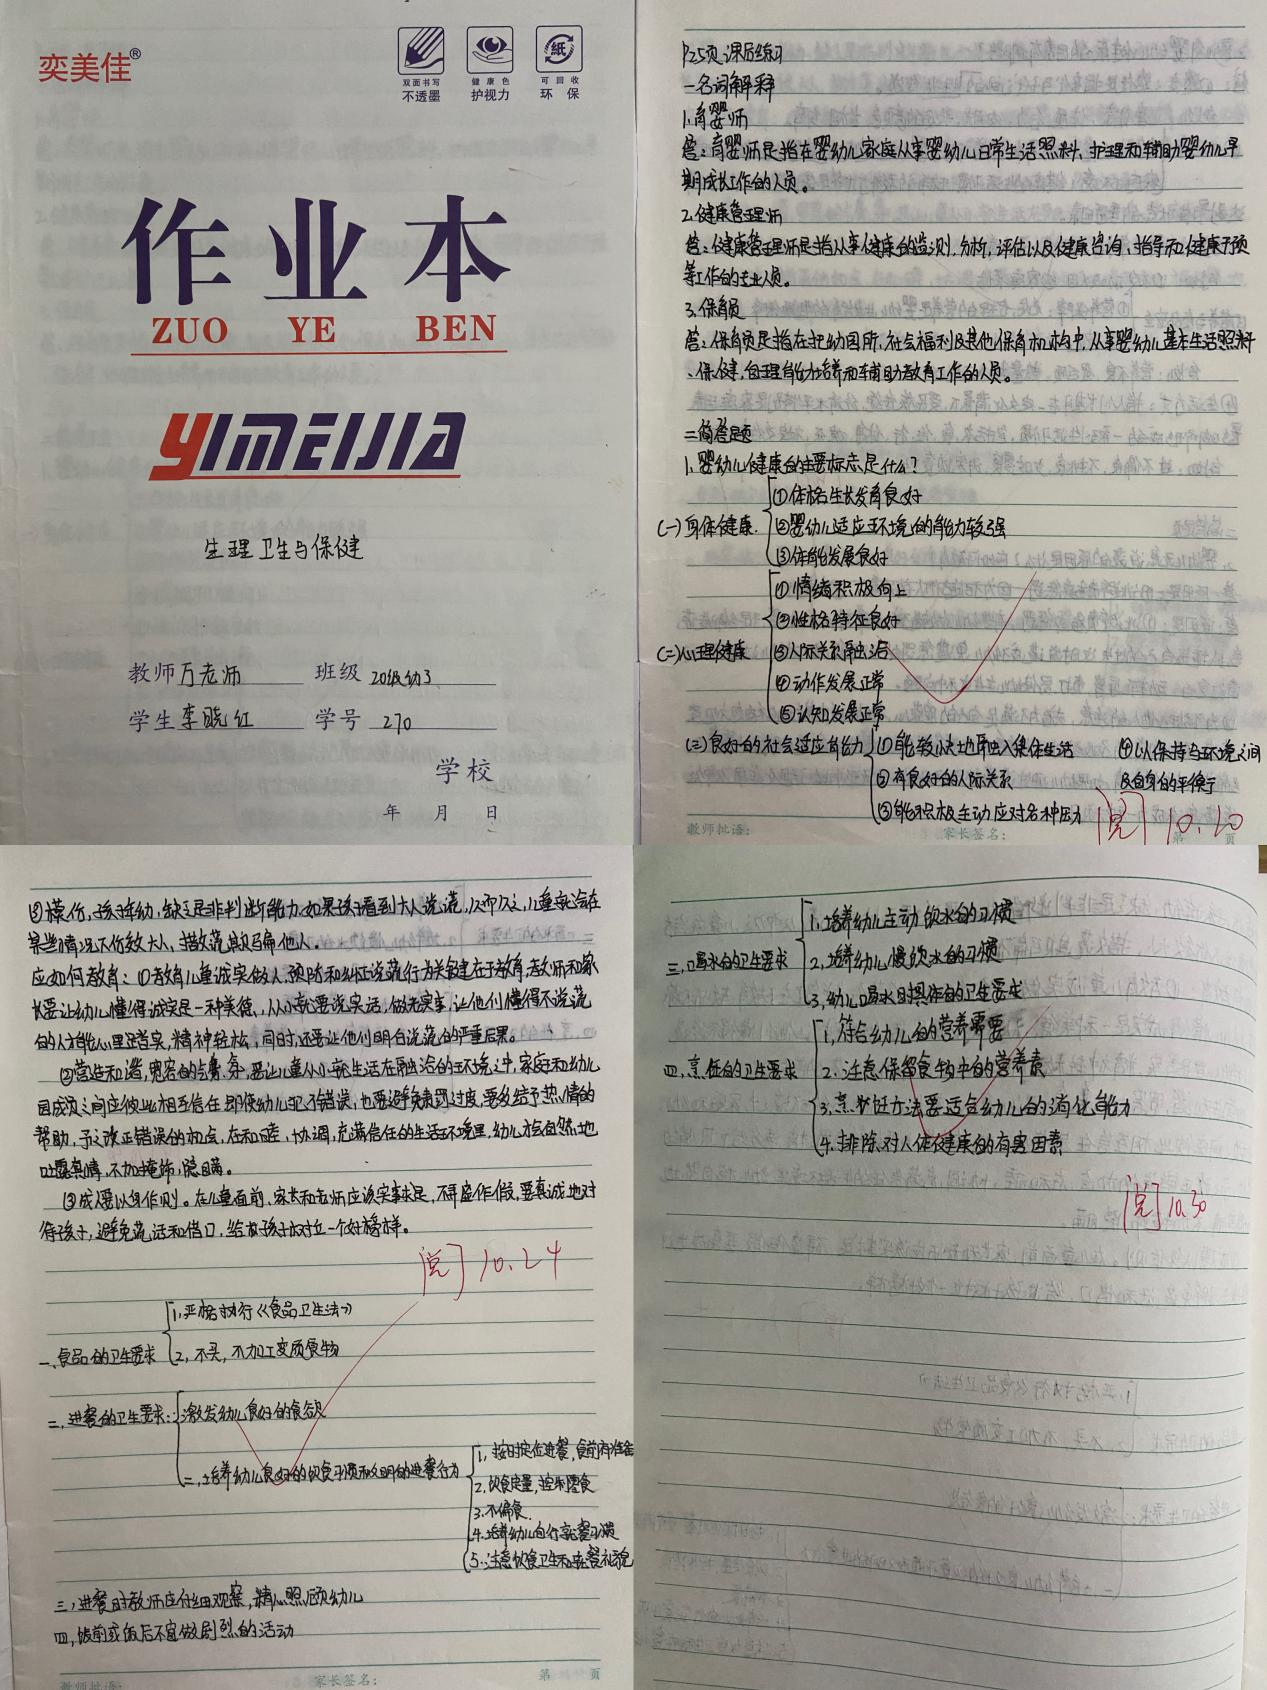 奕美佳®
双面书写
不透墨
健康色
护视力
紙
可回收
环保
作业本
ZUO YE BEN
YIMEIJIA
生理卫生与保健
教师 万老师 班级 20级幼3
学生 李晓红 学号 270
学校
年 月 日
P25页课后练习
一名词解释
1.育婴师
答:育婴师是指在婴幼儿家庭从事婴幼儿日常生活照料、护理和辅助婴幼儿早
期成长工作的人员。
2.健康管理师
答:健康管理师是指从事健康的监测,分析,评估以及健康咨询、指导和健康干预
等工作的专业人员。
3.保育员
答:保育员是指在托幼园所,社会福利及其他保育机构中,从事婴幼儿基本生活照料
、保健,自理能力培养和辅助教育工作的人员。
二简答题
1.婴幼儿健康的主要标志是什么?
(一)身体健康
①体格生长发育良好
②婴幼儿适应环境的能力较强
③体能发展良好
(二)心理健康
①情绪积极向上
②性格特征良好
③人际关系融洽
④动作发展正常
⑤认知发展正常
(三)良好的社会适应能力
①能较快地融入集体生活
②有良好的人际关系
③能积极主动应对各种压力
④以保持与环境之间
及自身的平衡
阅 10.20
教师批语: 家长签名: 第 页
③模仿,孩子年幼,缺乏是非判断能力,如果孩子看到大人说谎,久而久之,儿童就会在
某些情况下仿效大人,撒谎欺骗他人。
应如何教育:①教育儿童诚实做人,预防和纠正说谎行为关键在于教育,教师和家
长要让幼儿懂得诚实是一种美德,从小就要说实话,做老实事,让他们懂得不说谎
的人才能心里踏实,精神轻松,同时,还要让他们明白说谎的严重后果。
②营造和谐,宽容的气氛,要让儿童从小就生活在融洽的环境之中,家庭和幼儿
园成员之间应彼此相互信任即使幼儿犯了错误,也要避免责罚过度,要多给予热情的
帮助,予之改正错误的机会,在和睦,协调,充满信任的生活环境里,幼儿才会自然地
吐露真情,不加掩饰,隐瞒。
③成人要以身作则。在儿童面前,家长和老师应该实事求是,不弄虚作假,要真诚地对
待孩子,避免谎话和借口,给孩子树立一个好榜样。
阅 10.24
一、食品的卫生要求
1,严格执行《食品卫生法》
2,不买,不加工变质食物
二,进餐的卫生要求:
激发幼儿良好的食欲
二,培养幼儿良好的饮食习惯和文明的进餐行为
1,按时定位进餐,食前有准备
2.饮食定量,控制零食
3.不偏食
4.培养幼儿自行就餐习惯
5.注意饮食卫生和就餐礼貌
三,进餐时教师应仔细观察,精心照顾幼儿
四,饭前或饭后不宜做剧烈的活动
教师批语: 家长签名: 第 页
三.喝水的卫生要求
1.培养幼儿主动饮水的习惯
2.培养幼儿慢饮水的习惯
3,幼儿喝水用具作的卫生要求
四.烹饪的卫生要求
1,符合幼儿的营养需要
2.注意保留食物中的营养素
3.烹饪方法要适合幼儿的消化能力
4.排除对人体健康的有害因素
阅 10.30